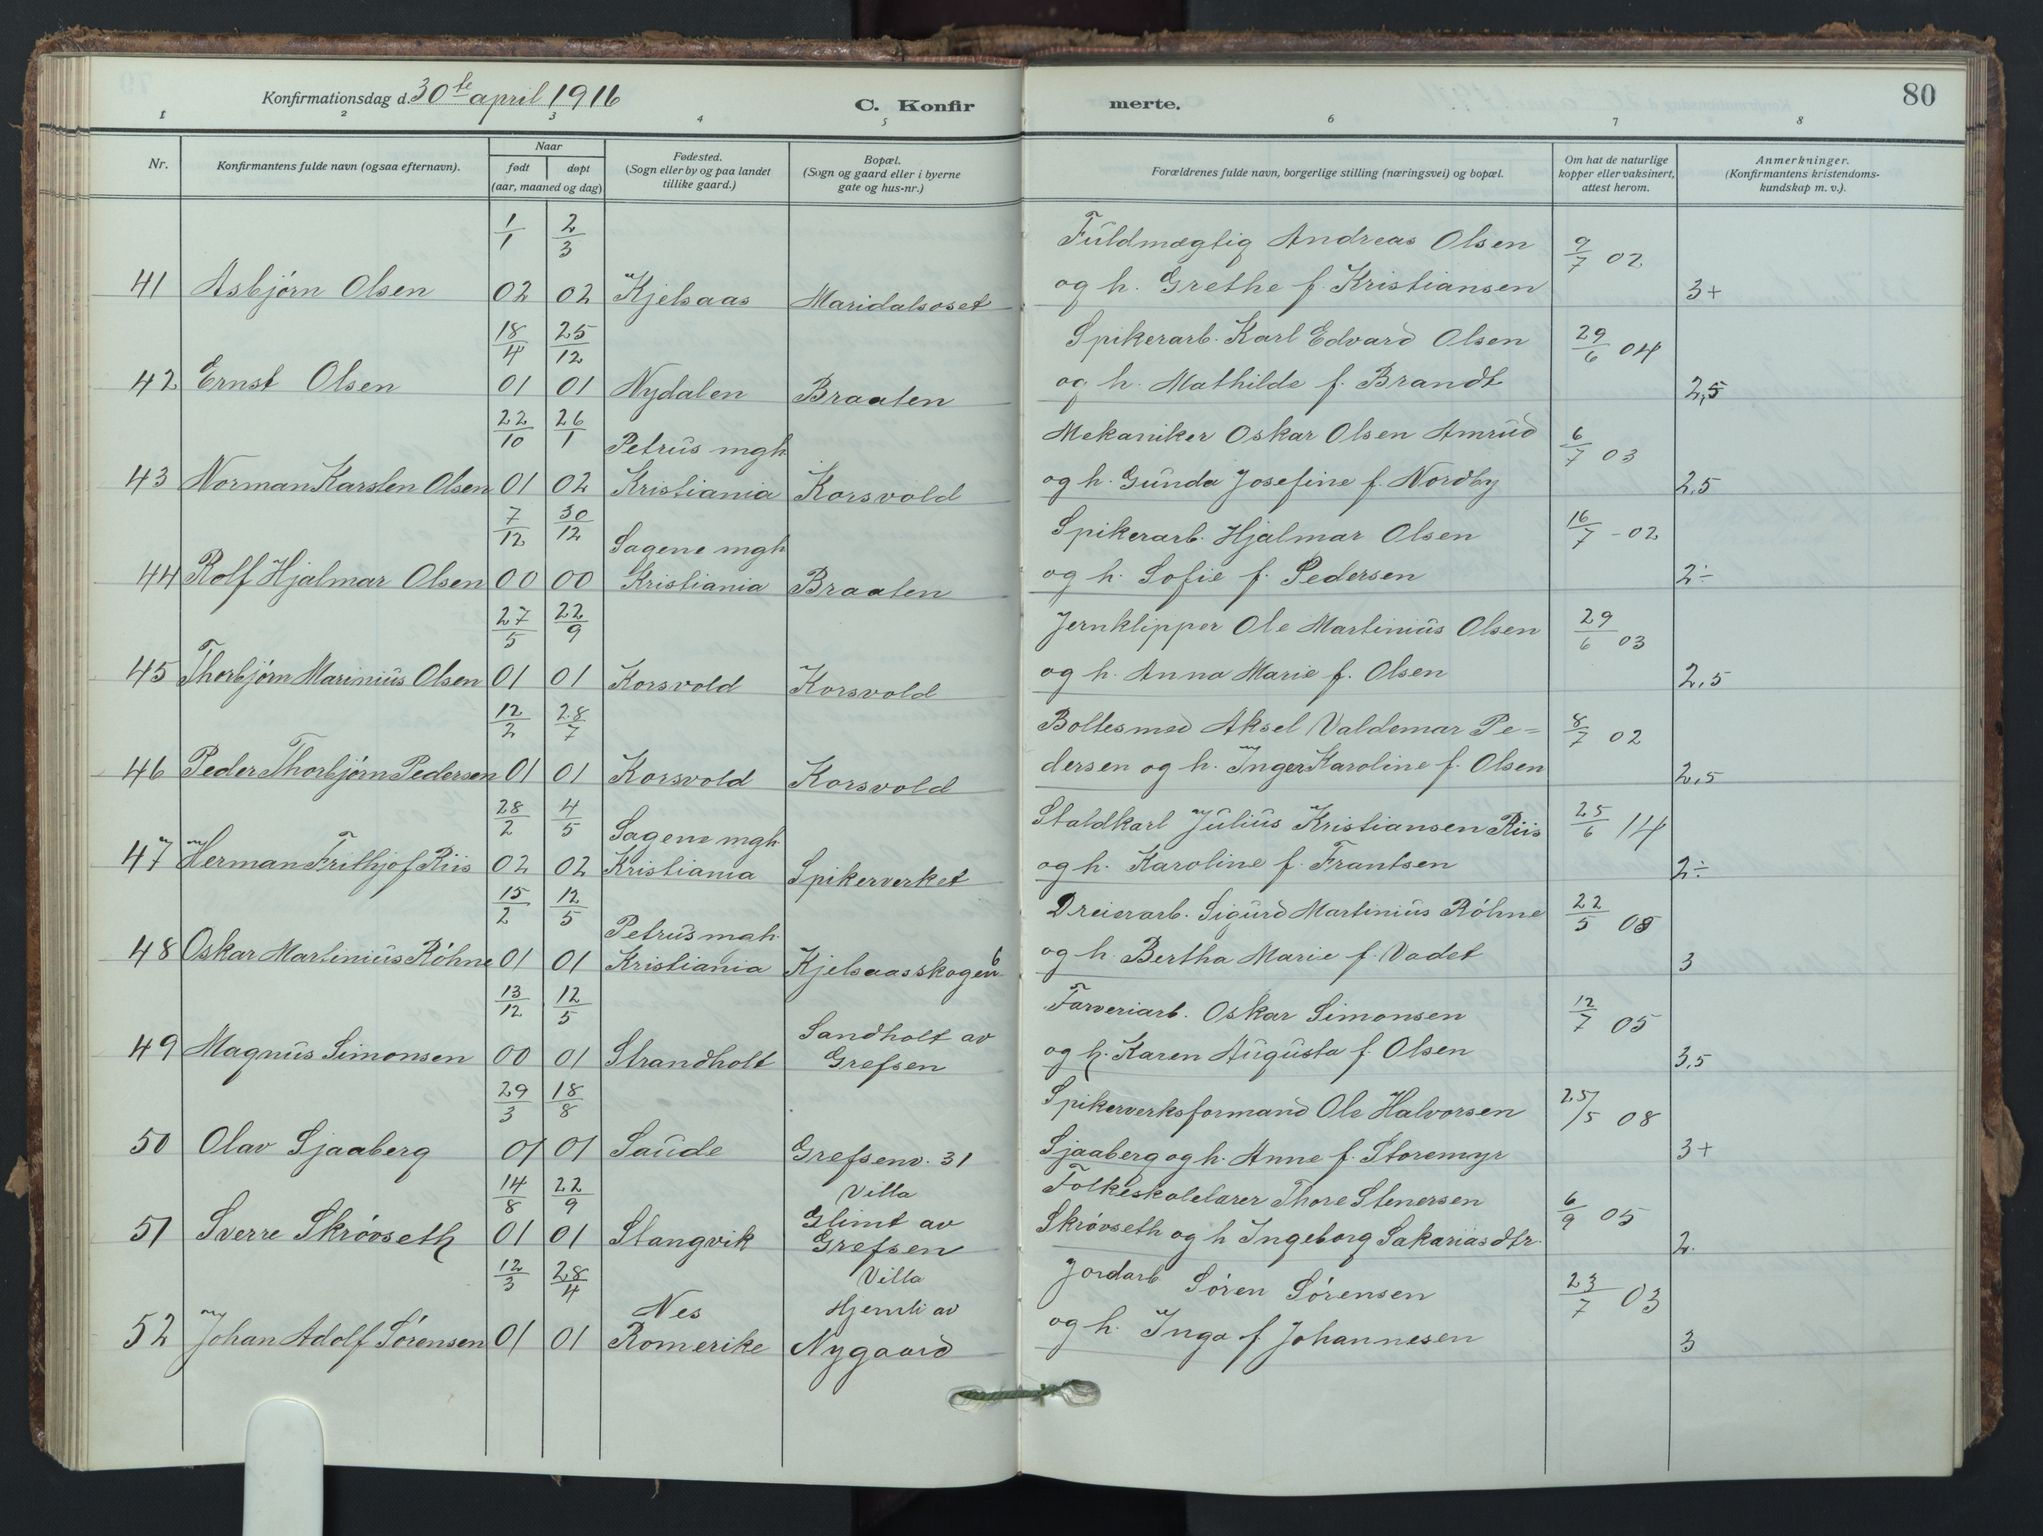 Konfirmationsdag d. 30te april 1916
C. Konfirmerte.
80
1 2 3 4 5 6 7 8
Nr.
Konfirmantens fulde navn (ogsaa efternavn).
Naar
født døpt
(aar, maaned og dag)
Fødested.
(Sogn eller by og paa landet
tillike gaard.)
Bopæl.
(Sogn og gaard eller i byerne
gate og hus-nr.)
Forældrenes fulde navn, borgerlige stilling (næringsvei) og bopæl.
Om hat de naturlige
kopper eller vaksinert,
attest herom.
Anmerkninger.
(Konfirmantens kristendoms-
kundskap m. v.).
1/1 2/3 Fuldmægtig Andreas Olsen 9/7 02
41 Asbjørn Olsen 02 02 Kjelsaas Maridalsoset og h. Grethe f. Kristiansen 3+
18/4 25/12 Spikerarb. Karl Edvard Olsen 29/6 04
42 Ernst Olsen 01 01 Nydalen Braaten og h. Mathilde f. Brandt 2,5
22/10 26/1 Petrus mgh. Mekaniker Oskar Olsen Amrud 6/7 03
43 Norman Karsten Olsen 01 02 Kristiania Korsvold og h. Gunda Josefine f. Nordby 2,5
7/12 30/12 Sagene mgh Spikerarb. Hjalmar Olsen 16/7 - 02
44 Rolf Hjalmar Olsen 00 00 Kristiania Braaten og h. Sofie f. Pedersen 2÷
27/5 22/9 Jernklipper Ole Martinius Olsen 29/6 03
45 Thorbjørn Marinius Olsen 01 01 Korsvold Korsvold og h. Anna Marie f. Olsen 2,5
12/2 28/7 Boltesmed Aksel Valdemar Pe= 8/7 02
46 Peder Thorbjørn Pedersen 01 01 Korsvold Korsvold dersen og h. Inger Karoline f. Olsen 2,5
28/2 4/5 Sagene mgh. Staldkarl Julius Kristiansen Riis 25/6 14
47 Herman Frithjof Riis 02 02 Kristiania Spikerverket og h. Karoline f. Frantsen 2÷
15/2 12/5 Petrus mgh. Dreierarb. Sigurd Martinius Røhne 22/5 05
48 Oskar Martinius Røhne 01 01 Kristiania Kjelsaasskogen 6 og h. Bertha Marie f. Vadet 3
13/12 12/5 Sandholt av Farveriarb. Oskar Simonsen 12/7 05
49 Magnus Simonsen 00 01 Strandholt Grefsen og h. Karen Augusta f. Olsen 3,5
29/3 18/8 Spikerverksformand Ole Halvorsen 25/5 08
50 Olav Sjaaberg 01 01 Saude Grefsenv. 31 Sjaaberg og h. Anne f. Storemyr 3+
14/8 22/9 Villa Folkeskolelærer Thore Stenersen 6/9 05
51 Sverre Skrøvseth 01 01 Stangvik Glimt av Grefsen Skrøvseth og h Ingeborg Sakariasdtr. 2.
12/3 28/4 Nes Villa Hjemli av Jordarb Søren Sørensen 23/7 03
52 Johan Adolf Sørensen 01 01 Romerike Nygaard og h. Inga f. Johannesen 3